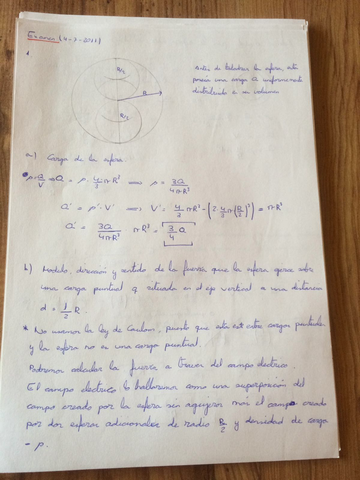 Examen (4-7-2021)
1
R/2
R
R/2
Antes de taladrar la esfera, esta
poseía una carga Q uniformemente
distribuida en su volumen
a) Carga de la esfera.
ρ=Q/V ⇒ Q = ρ · 4/3 π R³ ⟹ ρ = 3Q/4πR³
Q' = ρ' · V' ⟹ V' = 4/3 π R³ - (2 · 4/3 π (R/2)³) = π R³
Q' = 3Q/4πR³ π R³ = [3/4 Q]
b) Modulo, direccion y sentido de la fuerza que la esfera ejerce sobre
una carga puntual q situada en el eje vertical a una distancia
d = 1/2 R
* No usamos la ley de Coulomb, puesto que esta es entre cargas puntuales
y la esfera no es una carga puntual.
Podremos calcular la fuerza a traves del campo electrico.
El campo electrico lo hallaremos como una superposición del
campo creado por la esfera sin agujeros más el campo creado
por dos esferas adicionales de radio R/2 y densidad de carga
- ρ.